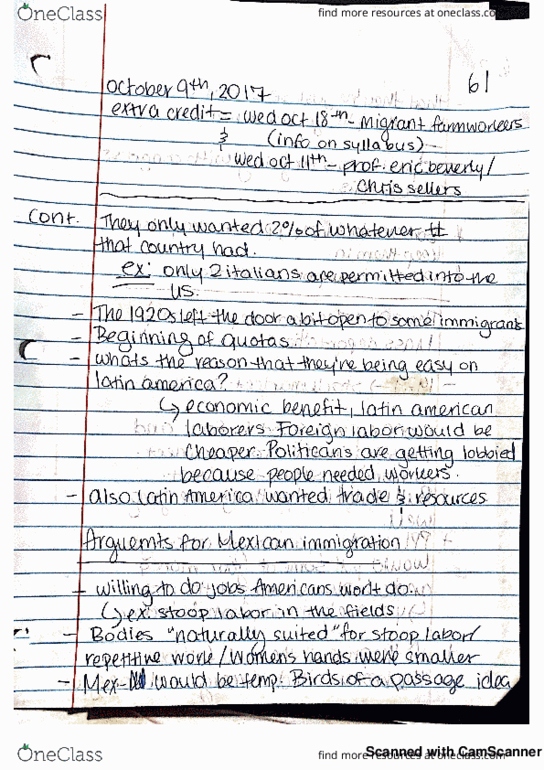 OneClass
find more resources at oneclass.com
October 9th, 2017
61
extra credit = wed oct 18th - migrant farmworkers
& (info on syllabus)
wed oct 11th - prof. eric beverly/
chris sellers
Cont. They only wanted 2% of whatever #
that country had.
ex: only 2 italians are permitted into the
US.
- The 1920s left the door a bit open to some immigrants
- Beginning of quotas.
- whats the reason that they're being easy on
latin america?
↳ economic benefit, latin american
laborers Foreign labor would be
cheaper. Politicans are getting lobbied
because people needed workers.
- also Latin America wanted trade & resources
Arguemts for Mexican immigration
- willing to do jobs Americans won't do.
↳ ex. stoop labor in the fields
- Bodies "naturally suited" for stoop labor/
repetitive work/womens hands were smaller
- Mex- would be temp. Birds of a passage idea
OneClass
find more resources at oneclass.com
Scanned with CamScanner